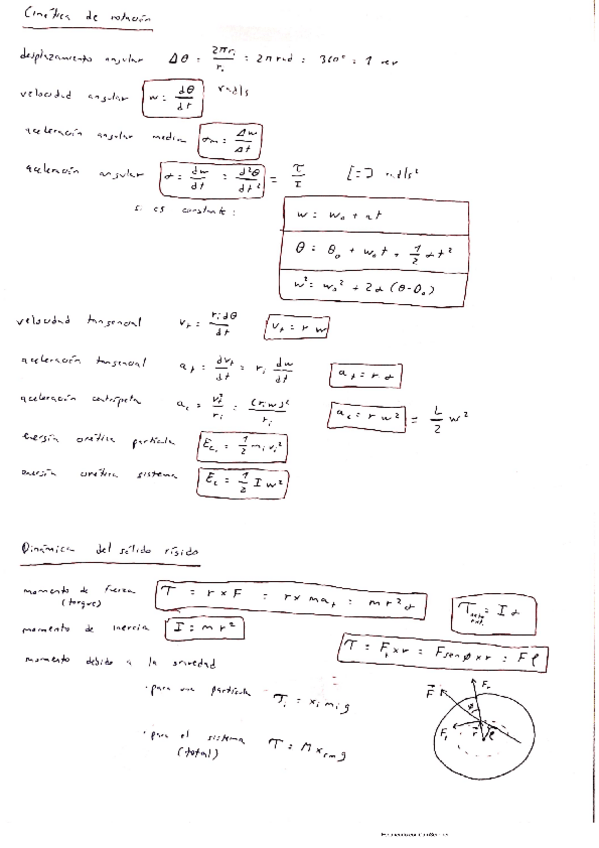 Cinética de rotación
desplazamiento angular Δθ = 2πrᵢ/rᵢ = 2π rad = 360° = 1 rev
velocidad angular w = dθ/dt rad/s
aceleración angular media αm = Δw/Δt
aceleración angular α = dw/dt = d²θ/dt² = τ/I [=] rad/s²
si es constante:
w = w₀ + αt
θ = θ₀ + w₀t + 1/2 αt²
w² = w₀² + 2α (θ-θ₀)
velocidad tangencial vₜ = rᵢdθ/dt vₜ = r w
aceleración tangencial aₜ = dvₜ/dt = rᵢ dw/dt aₜ = r α
aceleración centrípeta a꜀ = vₜ²/rᵢ = (rᵢw)²/rᵢ a꜀ = r w² = L/2 w²
energía cinética partícula E꜀ᵢ = 1/2 mᵢvᵢ²
energía cinética sistema E꜀ = 1/2 I w²
Dinámica del sólido rígido
momento de fuerza τ = r × F = r × maₜ = mr²α
(torque) = I α
momento de inercia I = mr²
τ = Fₜ × r = F sen φ × r = F ℓ
momento debido a la gravedad
· para una partícula τᵢ = xᵢmᵢg
· para el sistema τ = M x꜀ₘg
(total)
F Fᵣ φ Fₜ r ℓ